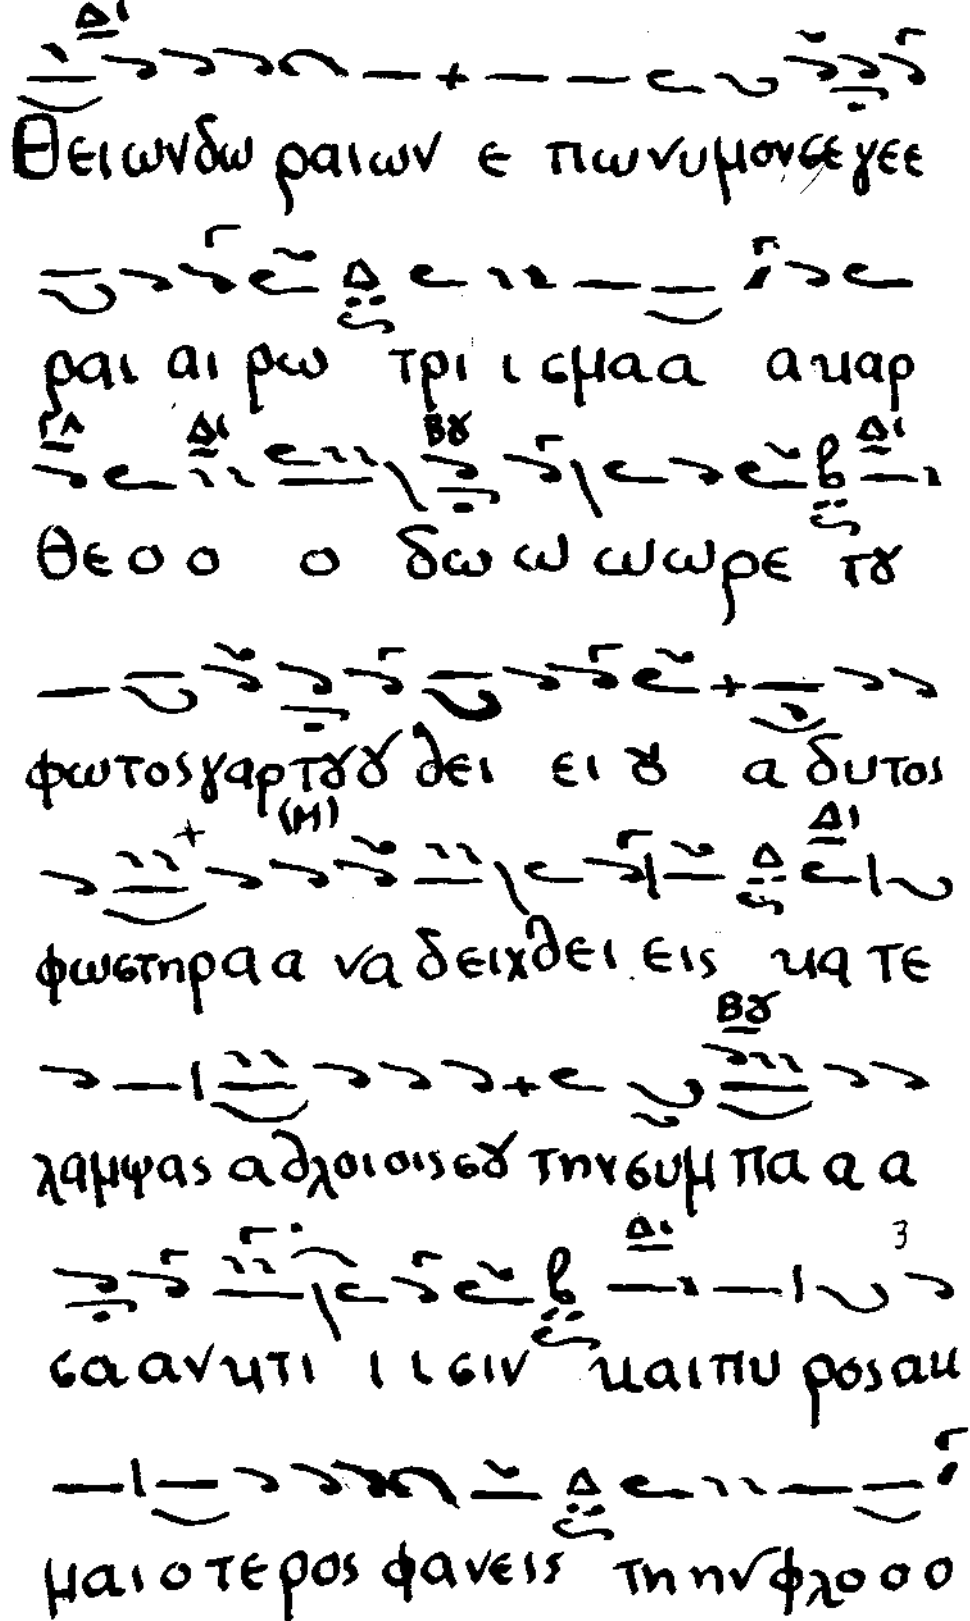 Δι
Θειωνδω ραιων ε πωνυμονσε γεε
Δ
ραι αι ρω τρι ι σμαα α καρ
ΓΑ Δι Βȣ Δι
θε ο ο ο δω ω ωωρε τȣ
φωτοςγαρτȣȣ θει ει ȣ α δυτος
(Μ) Δ Δι
φωστηραα να δειχθει εις κα τε
Βȣ
λαμψας αθλοιοισσȣ την συμ πα α α
Δι 3
σα αν κτι ι ι σιν και πυ ροςακ
Δ
μαιοτερος φανεις τη ην φλο ο ο